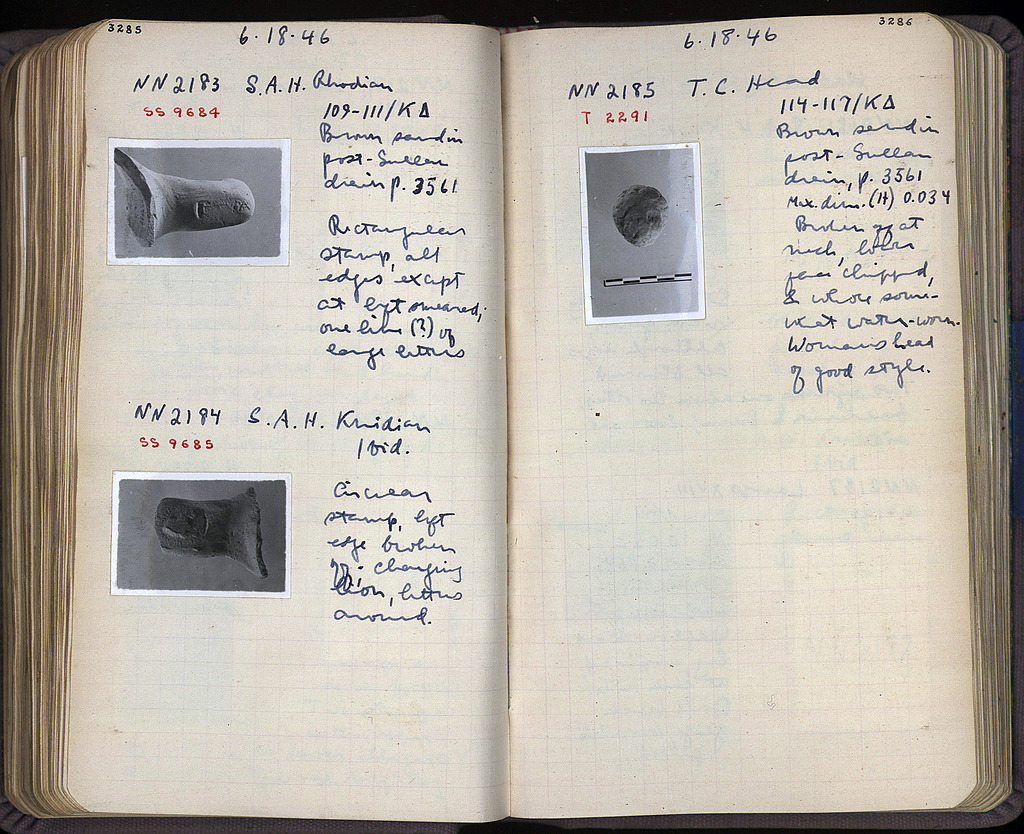 3285
6·18·46
NN 2183 S.A.H. Rhodian
SS 9684
109-111/ΚΔ
Brown sand in
post-Sullan
drain p. 3561
Rectangular
stamp, all
edges except
at left smeared;
one line (?) of
large letters
NN 2184 S.A.H. Knidian
SS 9685
Ibid.
Circular
stamp, left
edge broken
off; charging
lion, letters
around.
3286
6·18·46
NN 2185 T.C. Head
T 2291
114-117/ΚΔ
Brown sand in
post-Sullan
drain, p. 3561
Max. dim. (H) 0.034
Broken off at
neck, lower
face chipped,
& whole some-
what water-worn.
Womans head
of good style.